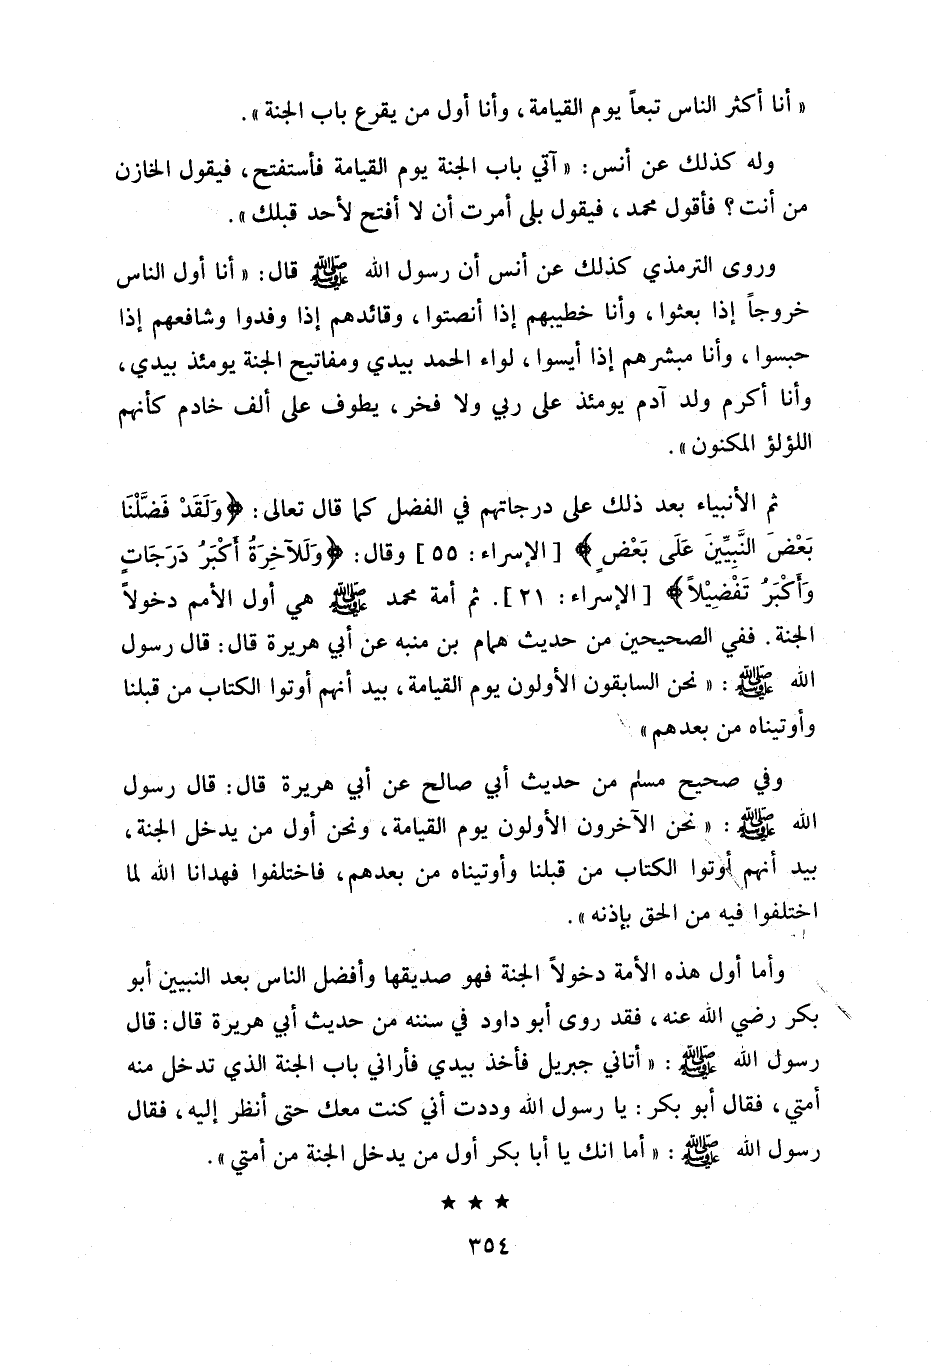 « أنا أكثر الناس تبعاً يوم القيامة، وأنا أول من يقرع باب الجنة ».
وله كذلك عن أنس: « آتي باب الجنة يوم القيامة فأستفتح، فيقول الخازن
من أنت؟ فأقول محمد، فيقول بلى أمرت أن لا أفتح لأحد قبلك ».
وروى الترمذي كذلك عن أنس أن رسول الله ﷺ قال: « أنا أول الناس
خروجاً إذا بعثوا، وأنا خطيبهم إذا أنصتوا، وقائدهم إذا وفدوا وشافعهم إذا
حبسوا، وأنا مبشرهم إذا أيسوا، لواء الحمد بيدي ومفاتيح الجنة يومئذ بيدي،
وأنا أكرم ولد آدم يومئذ على ربي ولا فخر، يطوف على ألف خادم كأنهم
اللؤلؤ المكنون ».
ثم الأنبياء بعد ذلك على درجاتهم في الفضل كما قال تعالى: ﴿وَلَقَدْ فَضَّلْنَا
بَعْضَ النَّبِيِّينَ عَلَى بَعْضٍ﴾ [الإسراء: ٥٥] وقال: ﴿وَلَلآخِرَةُ أَكْبَرُ دَرَجَاتٍ
وَأَكْبَرُ تَفْضِيْلاً﴾ [الإسراء: ٢١]. ثم أمة محمد ﷺ هي أول الأمم دخولاً
الجنة. ففي الصحيحين من حديث همام بن منبه عن أبي هريرة قال: قال رسول
الله ﷺ: « نحن السابقون الأولون يوم القيامة، بيد أنهم أوتوا الكتاب من قبلنا
وأوتيناه من بعدهم »
وفي صحيح مسلم من حديث أبي صالح عن أبي هريرة قال: قال رسول
الله ﷺ: « نحن الآخرون الأولون يوم القيامة، ونحن أول من يدخل الجنة،
بيد أنهم أوتوا الكتاب من قبلنا وأوتيناه من بعدهم، فاختلفوا فهدانا الله لما
اختلفوا فيه من الحق بإذنه ».
وأما أول هذه الأمة دخولاً الجنة فهو صديقها وأفضل الناس بعد النبيين أبو
بكر رضي الله عنه، فقد روى أبو داود في سننه من حديث أبي هريرة قال: قال
رسول الله ﷺ: « أتاني جبريل فأخذ بيدي فأراني باب الجنة الذي تدخل منه
أمتي، فقال أبو بكر: يا رسول الله وددت أني كنت معك حتى أنظر إليه، فقال
رسول الله ﷺ: « أما انك يا أبا بكر أول من يدخل الجنة من أمتي ».
★ ★ ★
٣٥٤